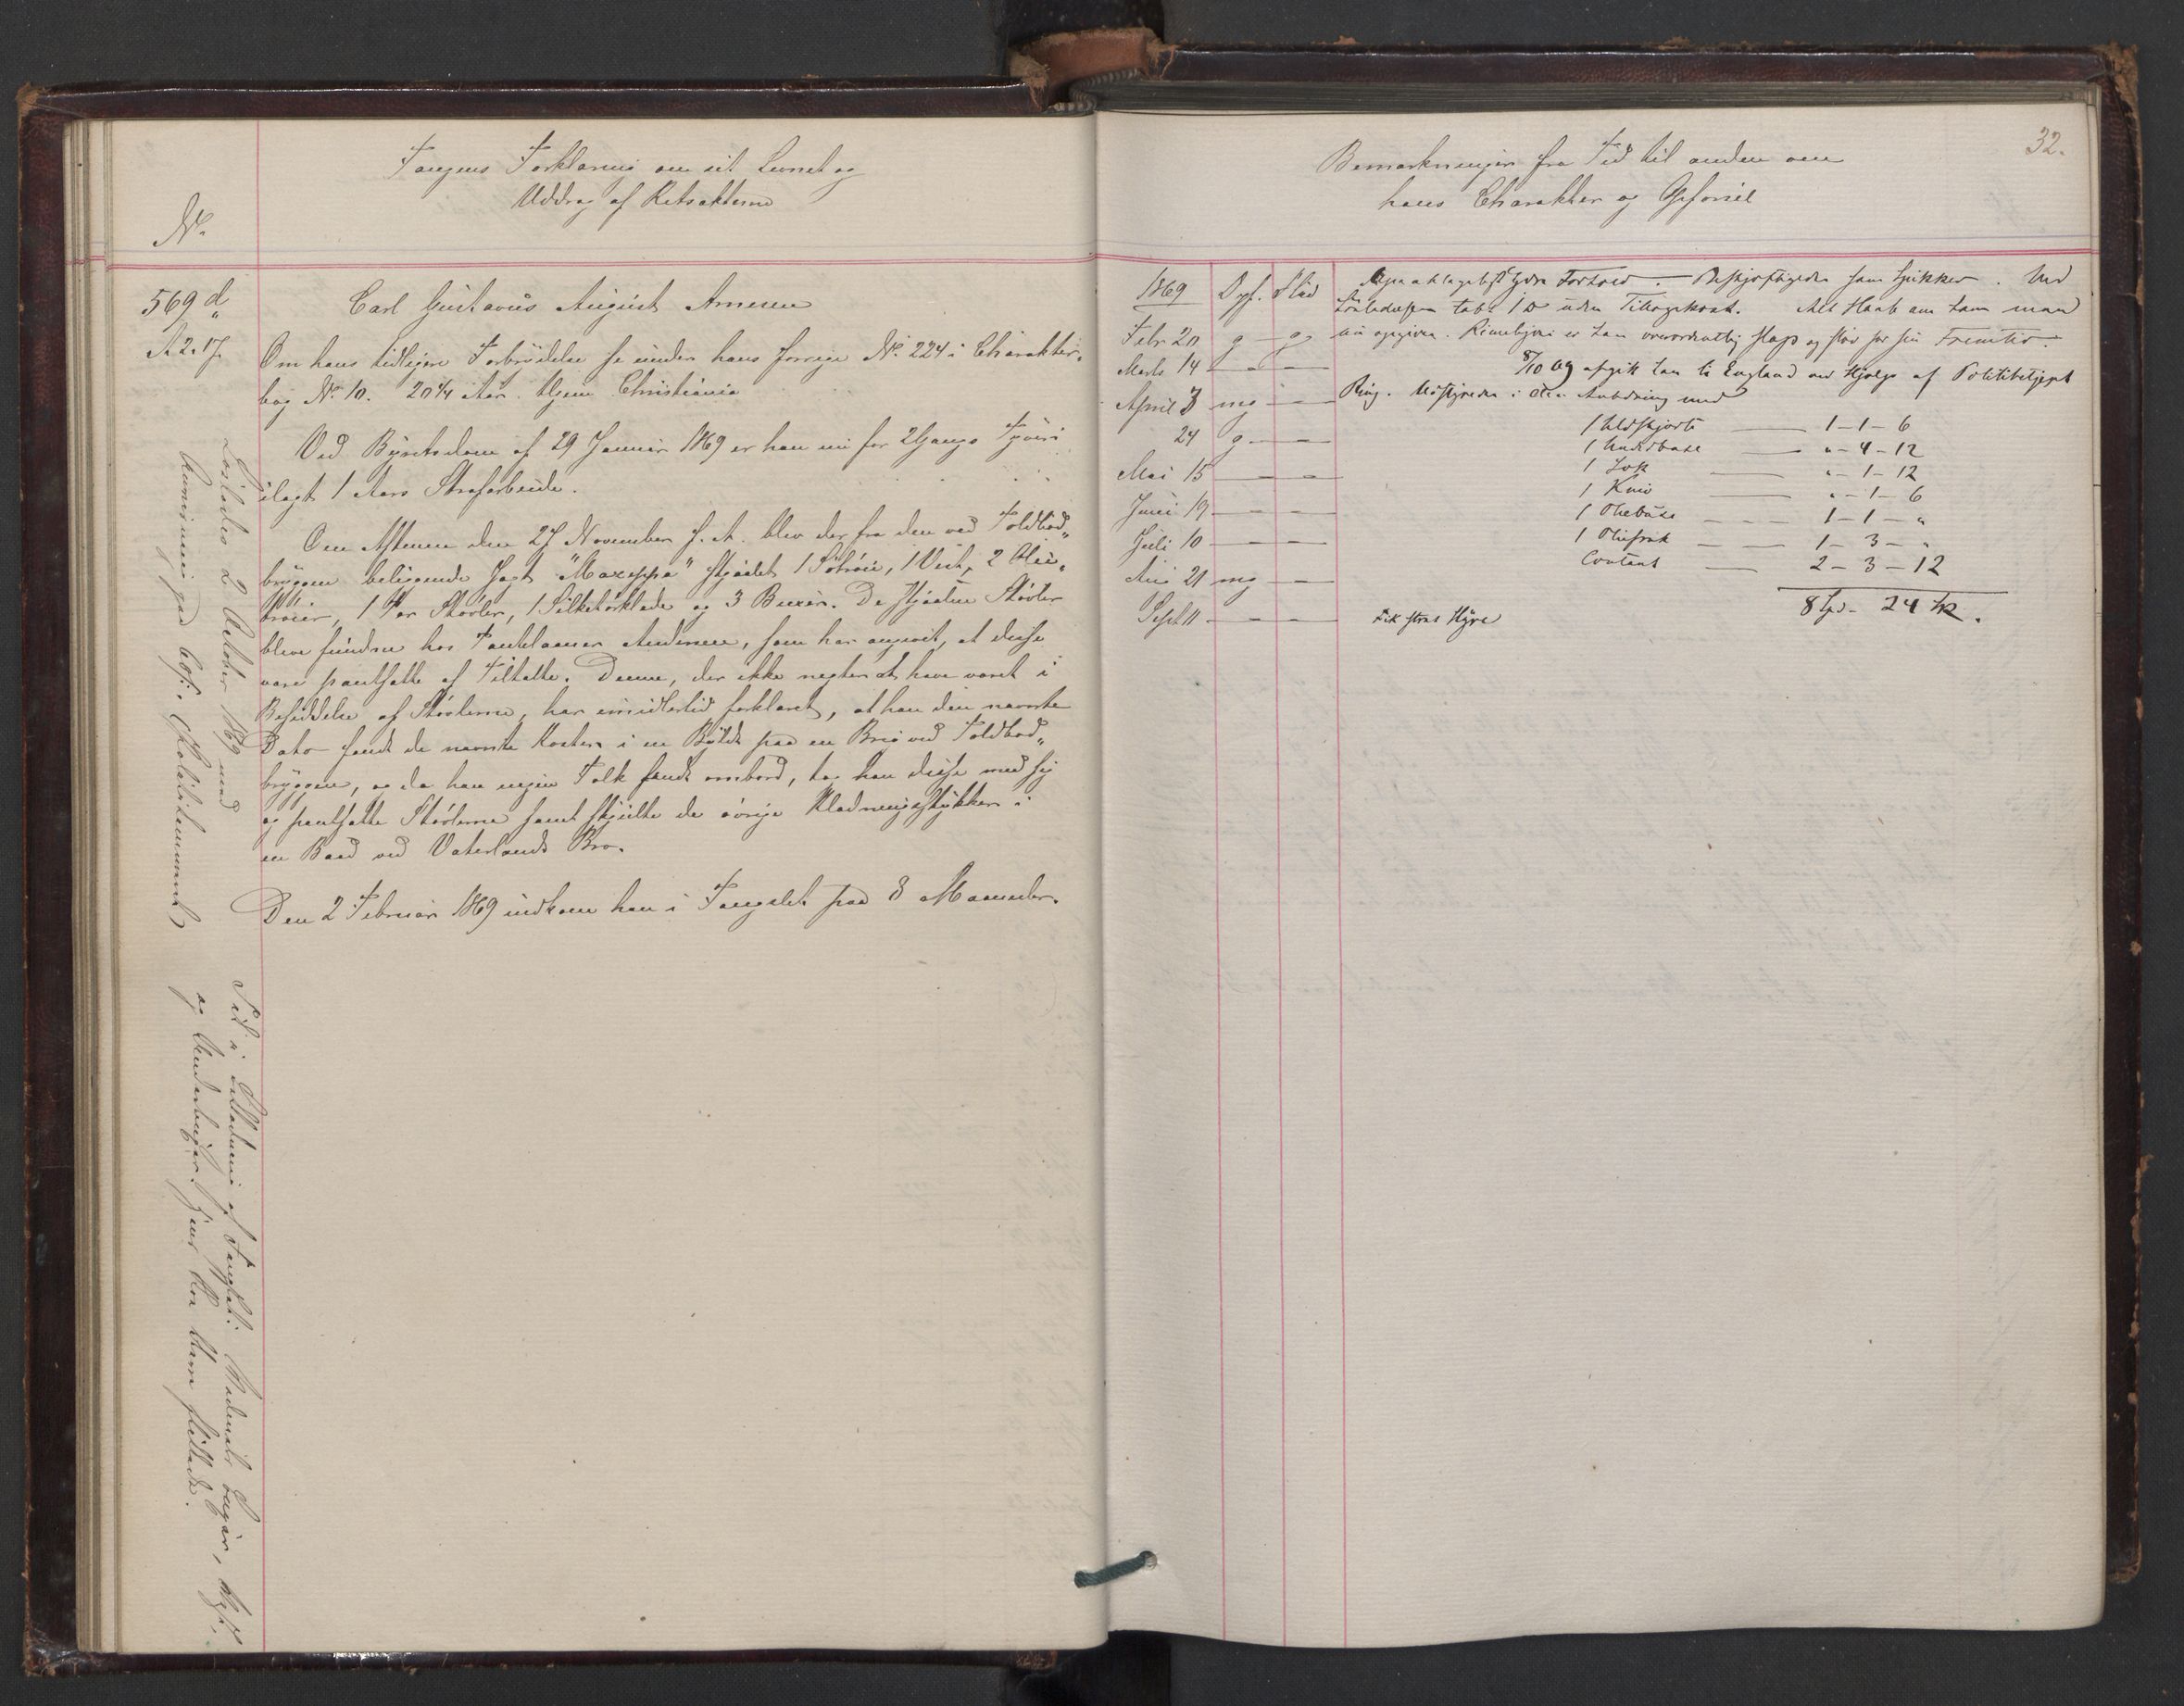 Fangens Forklaring om sit Levnet og
Uddrag af Retsakterne
No.
569 d
A. 2. 17.
Carl Gustavus August Arnesen
Om hans tidligere Forbrydelse se under hans forrige No. 224 i Charakter-
bog No. 10. 20 1/4 Aar. Hjem Christiania
Ved Byretsdom af 29 Januar 1869 er han nu for 2 Gangs Tyveri
ilagt 1 Aars Strafarbeide.
Om Aftenen den 27 November f. A. blev der fra den ved Toldbod„
bryggen beliggende Jagt "Mazeppa" stjaalet 1 Sötröie, 1 Vest, 2 Olie„
tröier, 1 Par Støvler, 1 Silketörklæde og 3 Buxer. De stjaalne Støvler
bleve fundne hos Pantelaaner Andersen, som har angivet, at disse
vare pantsatte af Tiltalte. Denne, der ikke negter at have været i
Besiddelse af Støvlerne, har imidlertid forklaret, at han den nævnte
Dato fandt de nævnte Koster i en Bylt paa en Brig ved Toldbod„
bryggen, og da han ingen Folk fandt ombord, tog han disse med sig
og pantsatte Støvlerne samt skjulte de övrige Klædningsstykker i
en Baad ved Vaterlands Bro.
Den 2 Februar 1869 indkom han i Fangslet paa 8 Maaneder.
Løslades 2 October 1869 med
Anvisning paa Chr. Politikammer
Sid i Fangslet:
og Underbuxer.
32.
Bemærkninger fra Tid til anden om
hans Charakter og Opførsel
1869 Opf. Flid
Febr 20 g g
Marts 14 – –
April 3 mg –
24 g – –
Mai 15 – –
Juni 19 – –
Juli 10 – –
Aug 21 mg –
Sept 11 – –
Fortred. Beskjæftigedes som Spikker. Ved
tabt 1 uden Tillægskost. Alt Haab om ham maa
nu opgives. er han overordentlig slap og sløv for sin Fremtid.
8/10 69 afgik han til England ved Hjælp af Politibetjent
Ring. i den Anledning med
1 Uldskjorte – 1 – 1 – 6
1 Underbuxe – „ – 4 – 12
1 – „ – 1 – 12
1 Kniv – „ – 1 – 6
1 Oliebuxe – 1 – 1 – „
1 Oliefrak – 1 – 3 – „
Contant – 2 – 3 – 12
8 Spd – 24 sk.
Fik strax Hyre